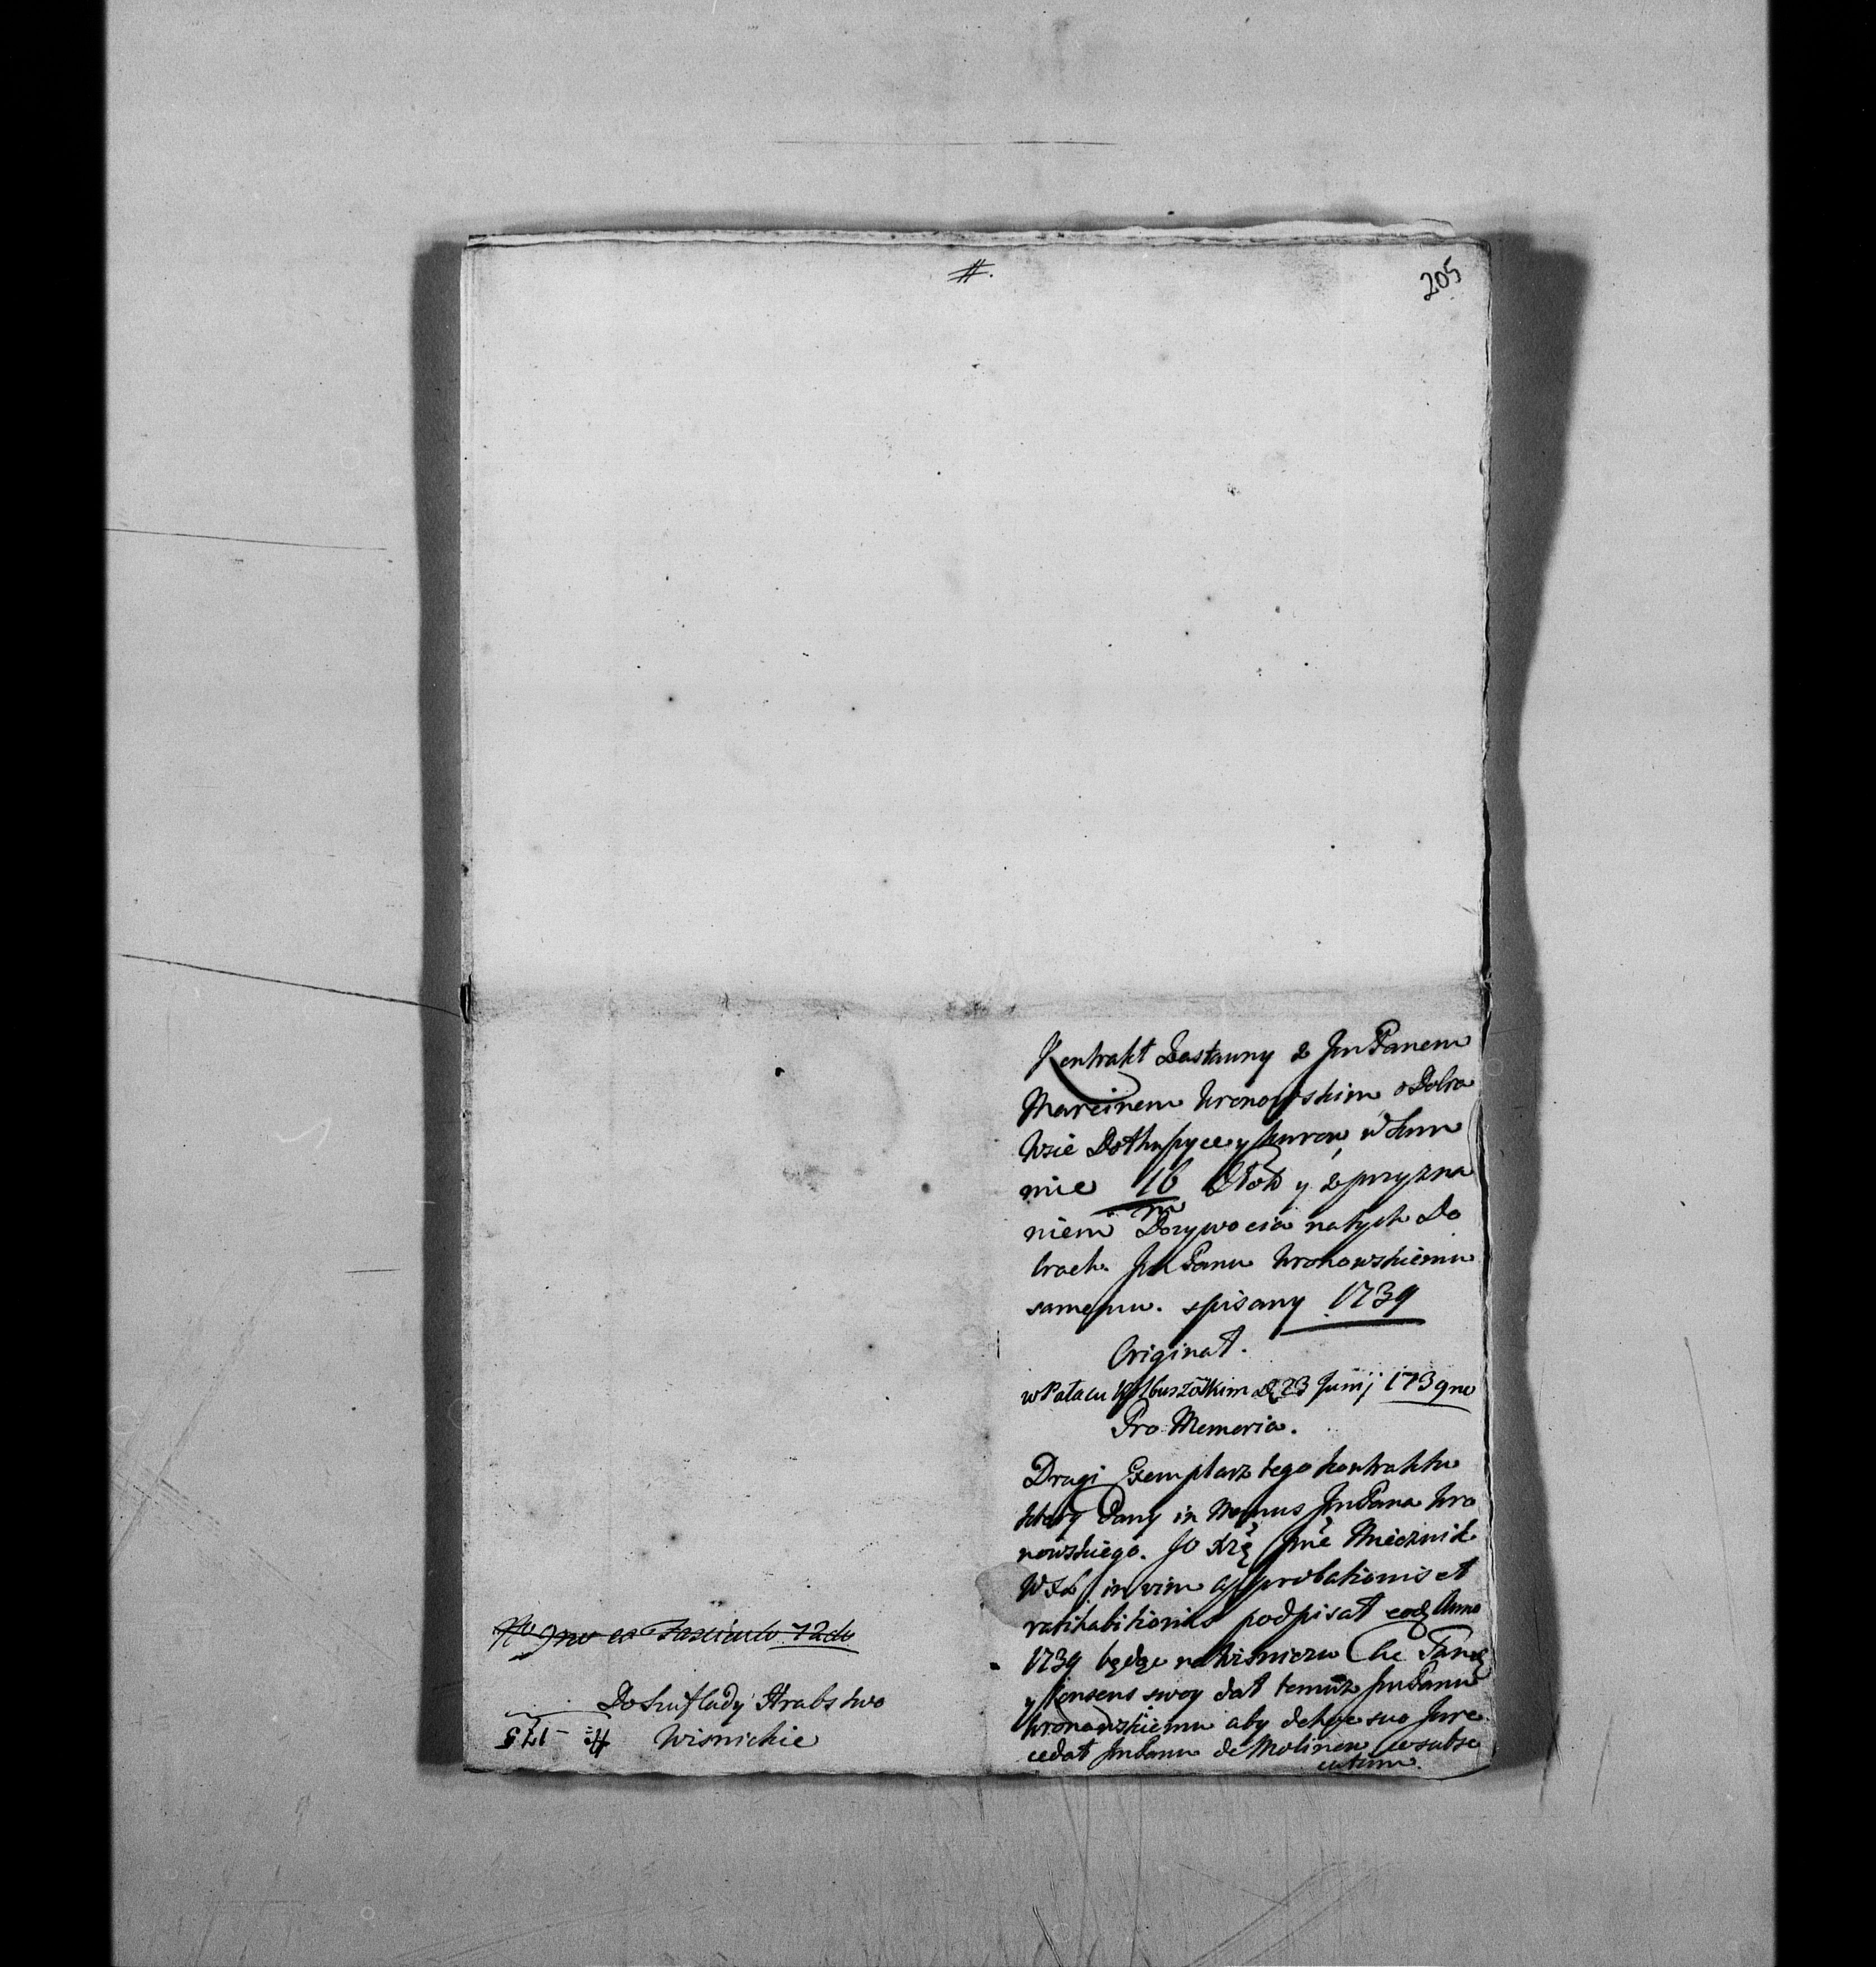 #.
205
Kontrakt Zastawny z Jm Panem
Marcinem Wronowskim o Dobra
Wsie Dołhuszyce y Kurow, w Sum
mie 16 Złot y z przyzna
m
niem Dozywocia na tych Do
brach Jm Panu Wronowskiemu
samemu. spisany 1739
Originał.
w Pałacu Kolbuszowskim d 23 Junij 1739no
Pro Memoria.
Drugi Exemplarz tego kontraktu
ktory dany in Manus Jm Pana Wro
nowskiego. JO Xżę Jmć Miecznik
WXL in vim approbationis et
ratihabitionis podpisał eodē Anno
1739 będąc w Wisniczu
y konsens swoy dał temuz Jm Panu
Wronowskiemu aby de hoc suo Jure
cedał Jm Panu de Molinen
cutum.
ex Fasciculo 12do
Do Szuflady Hrabstwo
Wisnickie